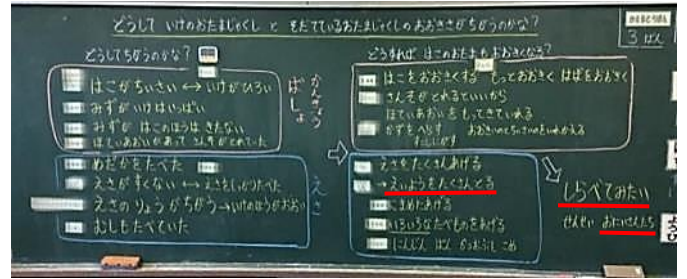 どうして いけのおたまじゃくし と そだてているおたまじゃくしの おおきさがちがうのかな?
3 ぱん
どうしてちがうのかな?
はこがちいさい ↔ いけがひろい
みずが いけはいっぱい
みずが はこのほうは きたない
ほていあおいがあって さんそがとれていた
かんきょう
ばしょ
めだかをたべた
えさが すくない ↔ えさをしっかりたべた
えさの りょうがちがう→いけのほうがおおい
むしもたべていた
えさ
どうすれば はこのおたまもおおきくなる?
はこをおおきくする もっとおおきく はばをおおきく
さんそが とれるといいから
ほていあおいをもってきていれる
かずをへらす おおきいのとちいさいのをいれかえる
えさをたくさんあげる
→えいようをたくさんとる
こまめにあげる
いろいろなたべものをあげる
にんじん ぱん かつおぶし こめ
しらべてみたい
せんせい おにいさんたち